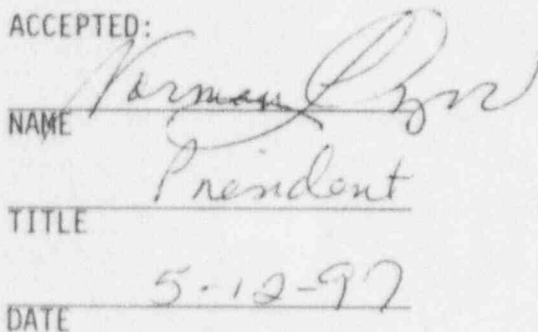 ACCEPTED:
Norman
NAME
President
TITLE
5-12-97
DATE